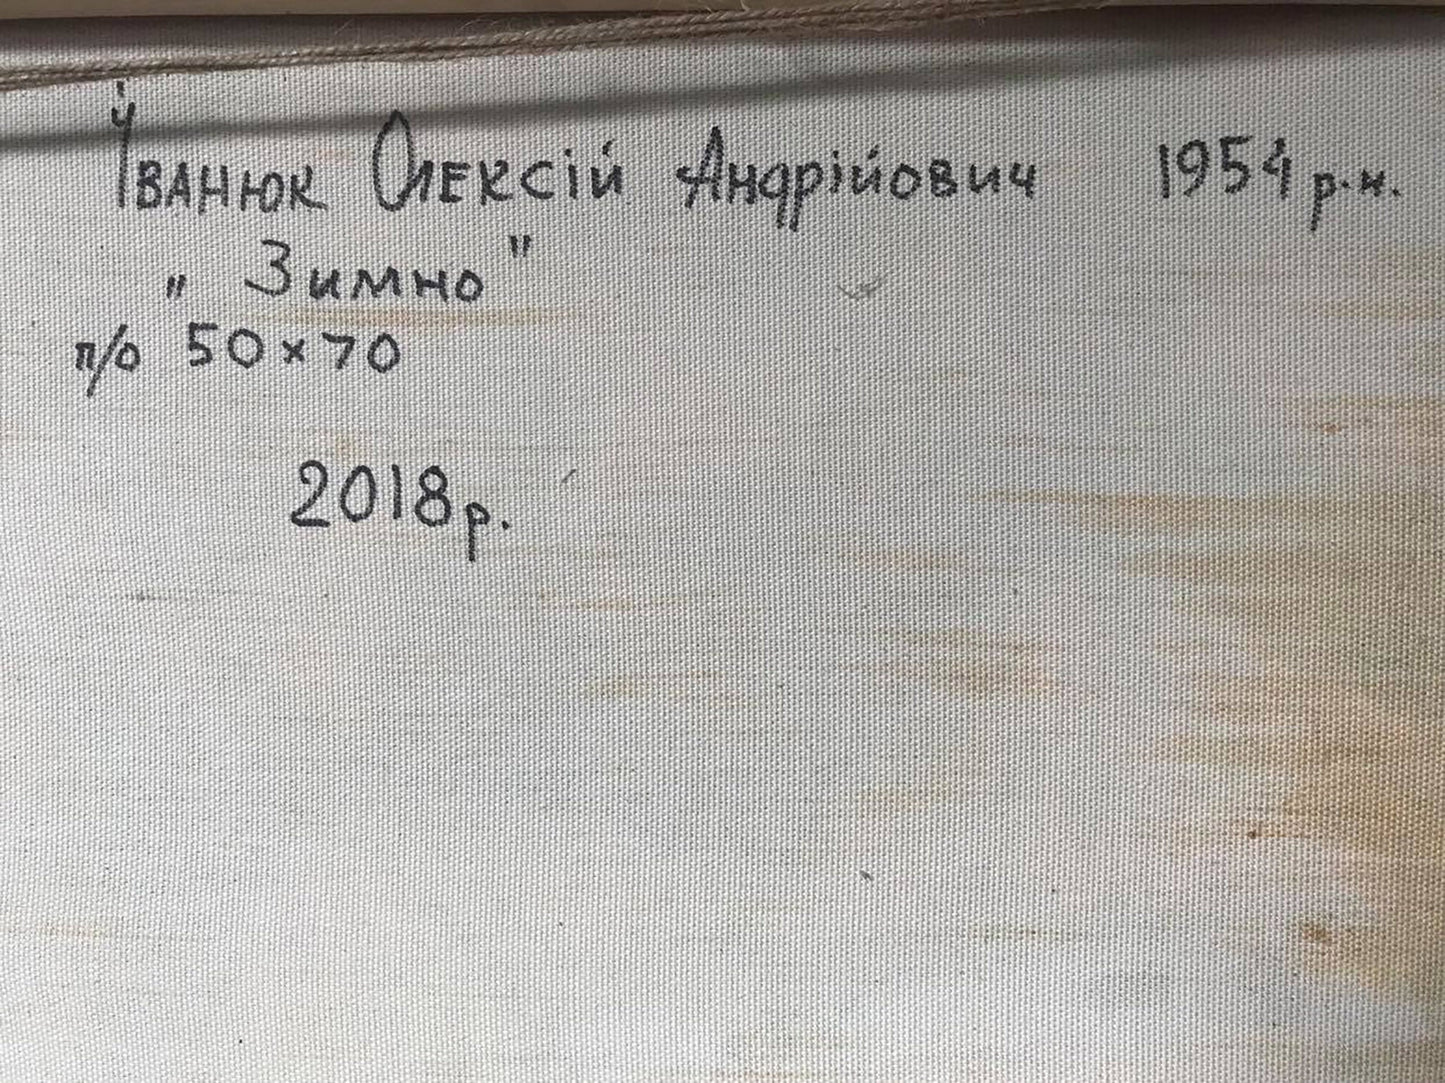 Іванюк Олексій Андрійович 1954 р.н.
„Зимно"
п/о 50×70
2018р.